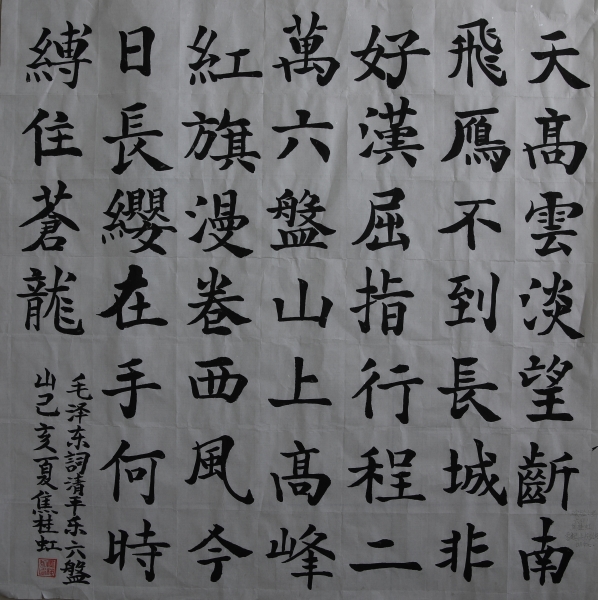 天髙雲淡望斷南
飛鴈不到長城非
好漢屈指行程二
萬六盤山上髙峰
紅旗漫卷西風今
日長纓在手何時
縛住蒼龍
毛泽东詞清平乐六盤
山己亥夏焦桂虹